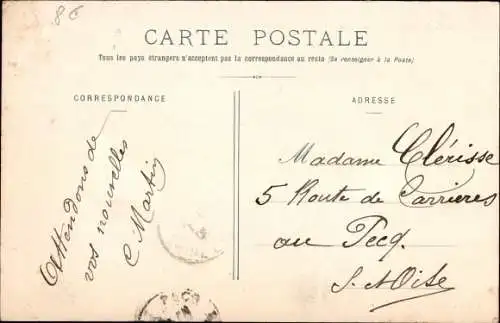 8 E
CARTE POSTALE
Tous les pays étrangers n'acceptent pas la correspondance au recto (Se renseigner à la Poste)
CORRESPONDANCE
Attendons de
vos nouvelles
C Martin
ADRESSE
Madame Clérisse
5 Route de Carrieres
au Pecq.
S. et Oise
PECQ